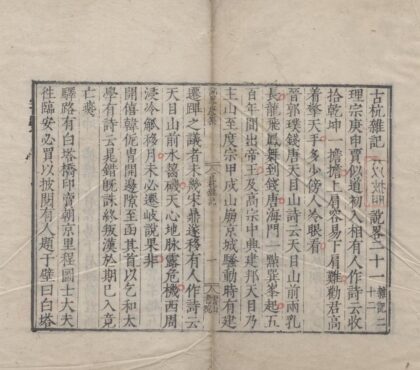 古杭雜記 說畧二十一 雜記二
理宗庚申賈似道初入相有人作詩云收
拾乾坤一擔擔上肩容易下肩難勸君高
着擎天手多少傍人冷眼看
晉郭璞錢唐天目山詩云天目山前兩乳
長龍飛鳳舞到錢唐海門一點巽峯起五
百年間出帝王及高宗中興建邦天目乃
主山至度宗甲戌山崩京城騷動時有建
遷蹕之議者未幾宋鼎遂移有人作詩云
天目山前水齧磯天心地脈露危機西周
浸冷觚移月未必遷岐說果非
開禧韓侂冑開邊隙至函其首以乞和太
學有詩云晁錯既誅終叛漢於期已入竟
亡燕
驛路有白塔橋印賣朝京里程圖士大夫
徃臨安必買以披閱有人題于壁曰白塔